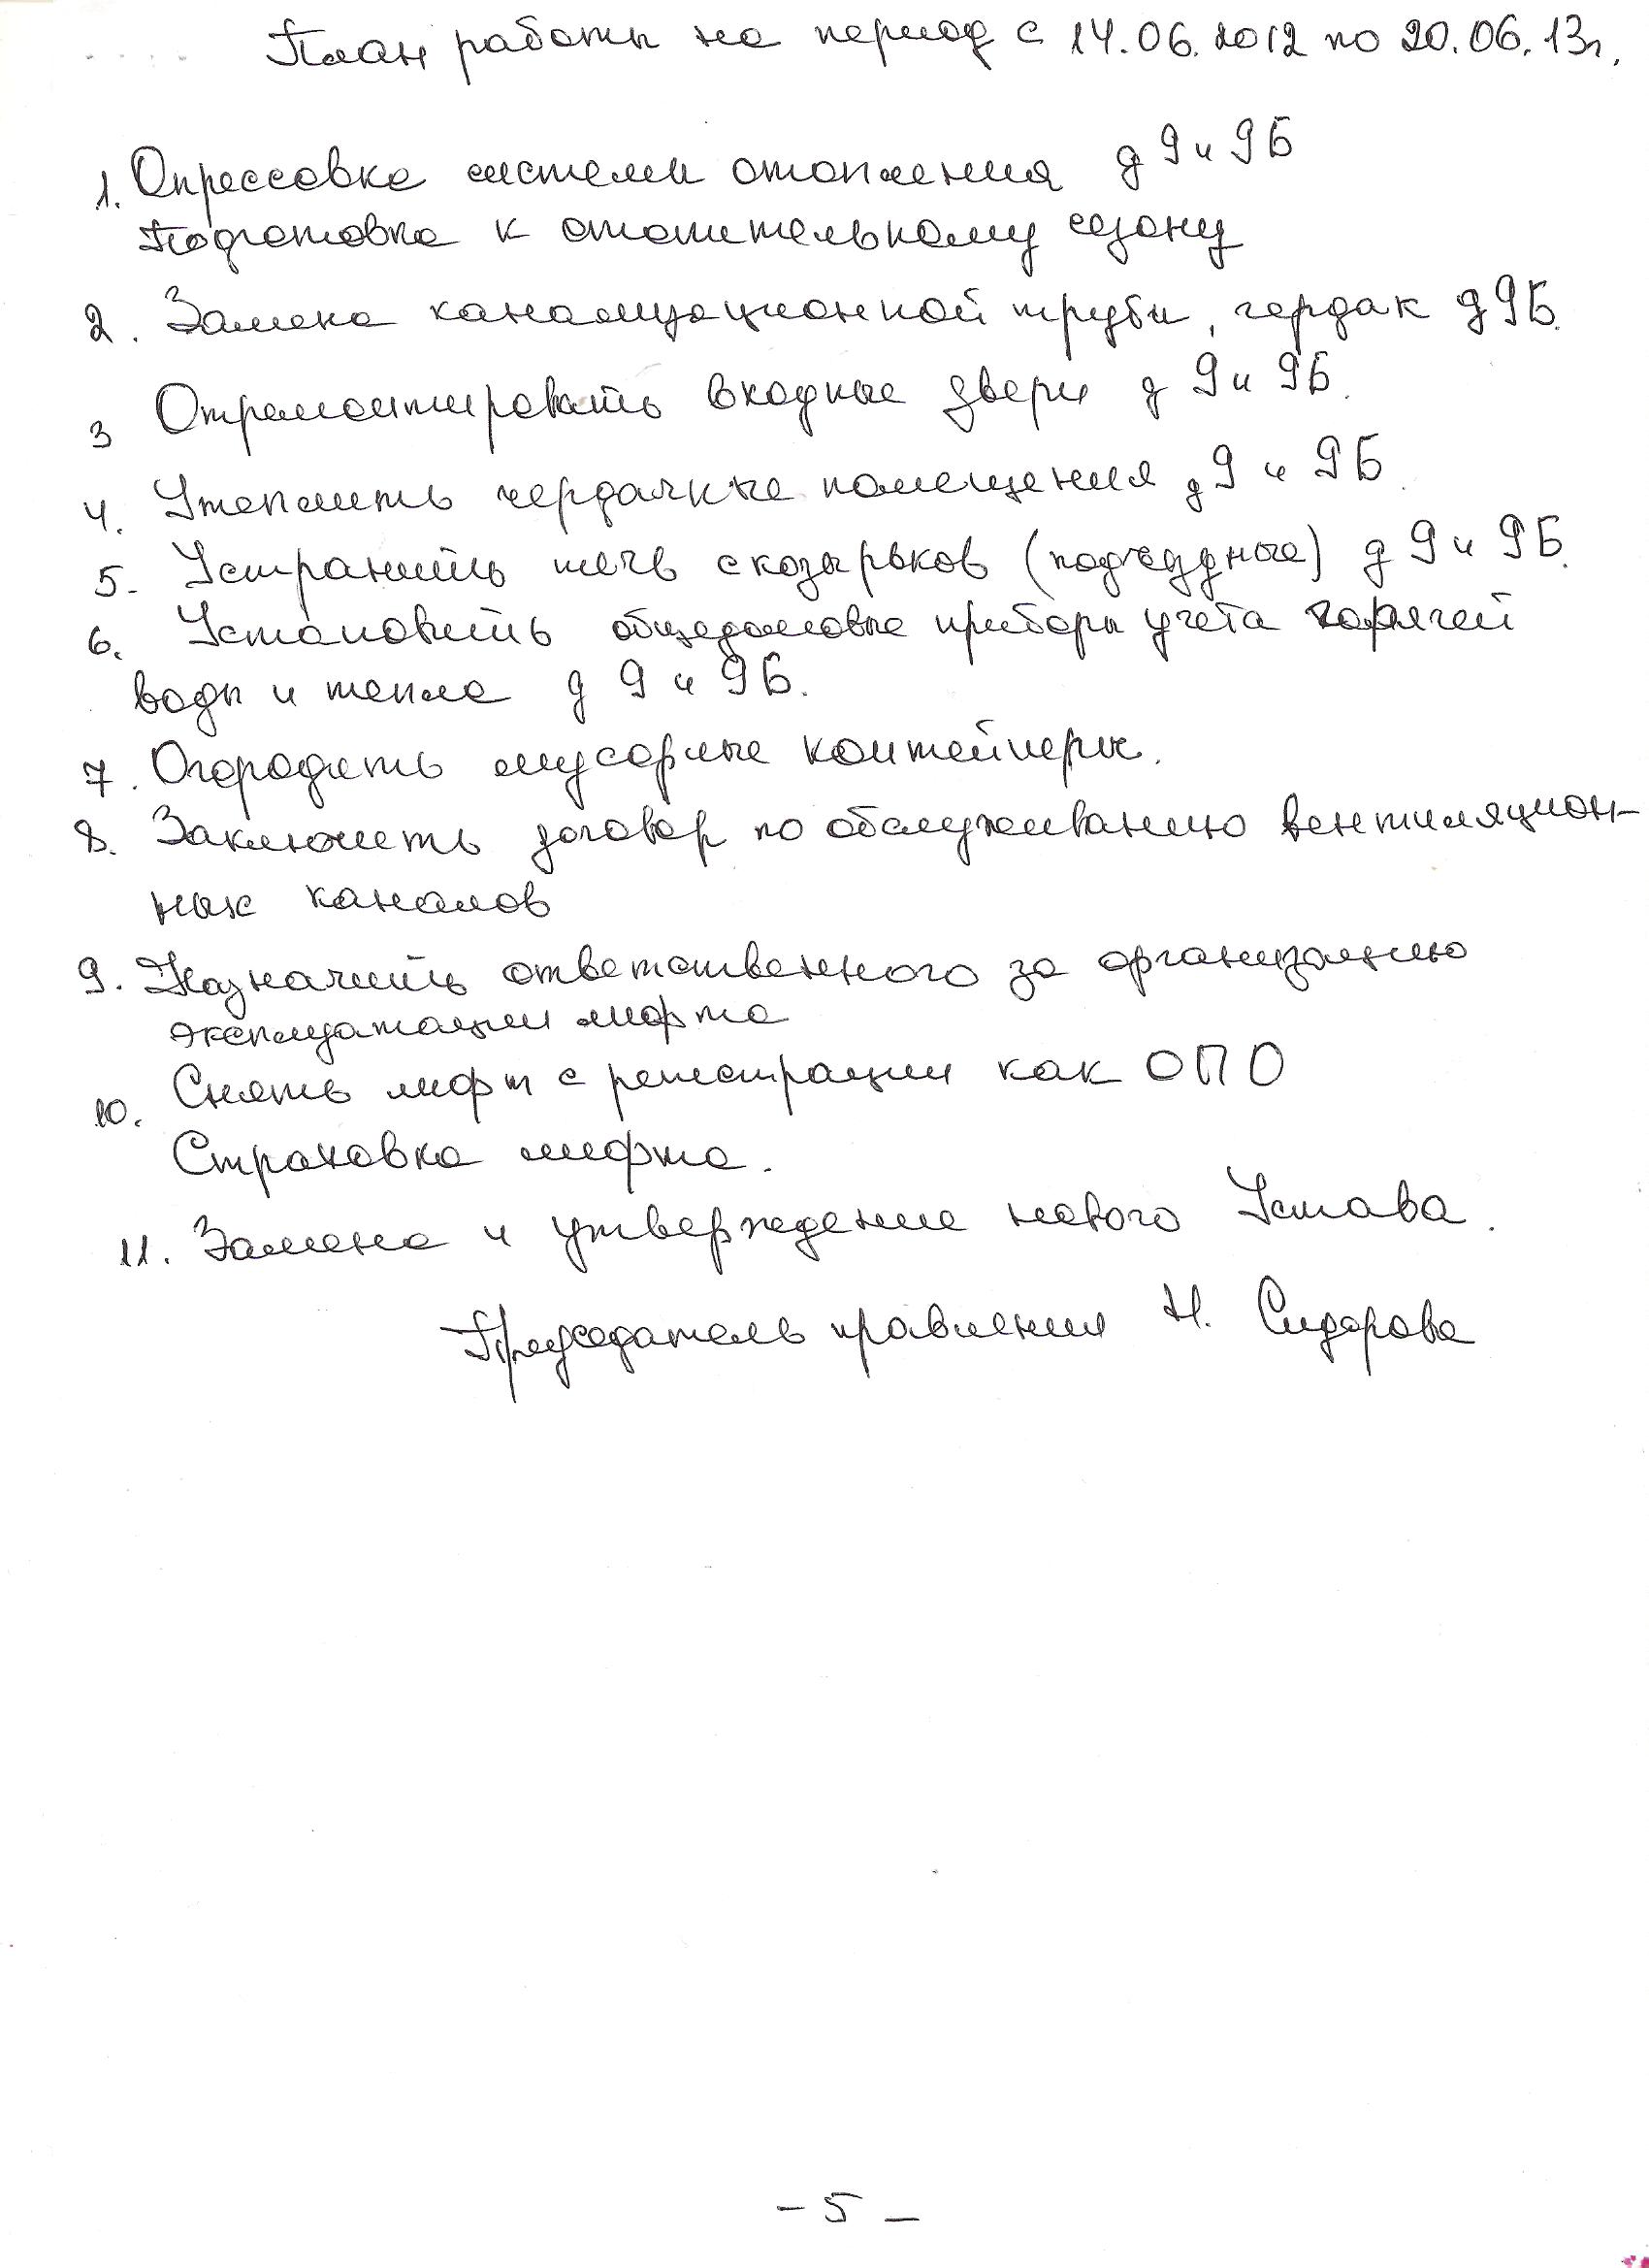 План работы на период с 14.06.2012 по 20.06.13г.
1. Опрессовка системы отопления д 9 и 9Б
Подготовка к отопительному сезону
2. Замена канализационной трубы, чердак д 9Б.
3 Отремонтировать входные двери д 9 и 9Б.
4. Утеплить чердачные помещения д 9 и 9Б.
5. Устранить течь с козырьков (подъездные) д 9 и 9Б.
6. Установить общедомовые приборы учета горячей
воды и тепла д 9 и 9Б.
7. Огородить мусорные контейнеры.
8. Заключить договор по обслуживанию вентиляцион-
ных каналов
9. Назначить ответственного за организацию
эксплуатации лифта
10. Снять лифт с регистрации как ОПО
Страховка лифта.
11. Замена и утверждение нового Устава.
Председатель правления Н. Сидорова
- 5 -